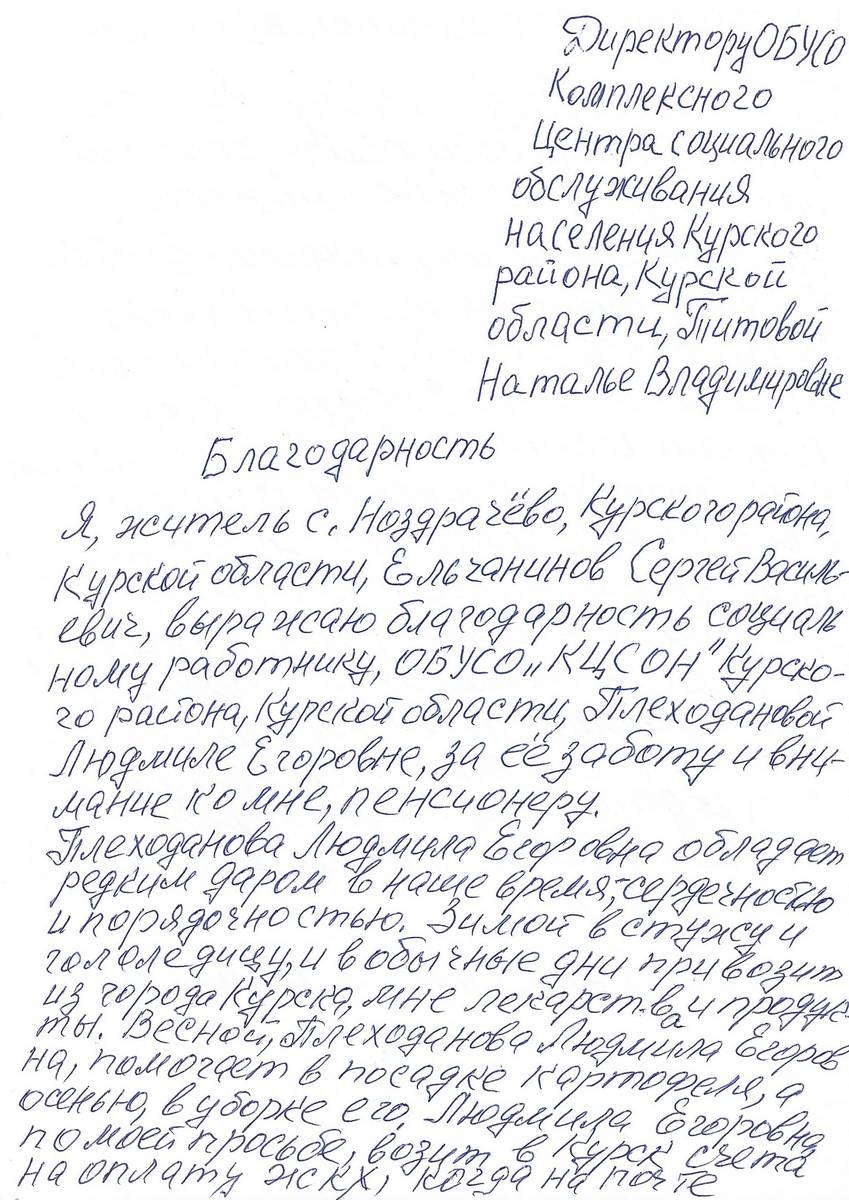 Директору ОБУСО
Комплексного
Центра социального
обслуживания
населения Курского
района, Курской
области, Титовой
Наталье Владимировне
Благодарность
Я, житель с. Ноздрачёво, Курского района,
Курской области, Ельчанинов Сергей Василь-
евич, выражаю благодарность социаль
ному работнику, ОБУСО „КЦСОН" Курско-
го района, Курской области, Плеходановой
Людмиле Егоровне, за её заботу и вни-
мание ко мне, пенсионеру.
Плеходанова Людмила Егоровна обладает
редким даром в наше время,-сердечностью
и порядочностью. Зимой в стужу и
гололедицу, и в обычные дни привозит
из города Курска, мне лекарства и продук-
ты. Весной, Плеходанова Людмила Егоров
на, помогает в посадке картофеля, а
осенью, в уборке его. Людмила Егоровна
по моей просьбе, возит в Курск счета
на оплату ЖКХ, когда на почте